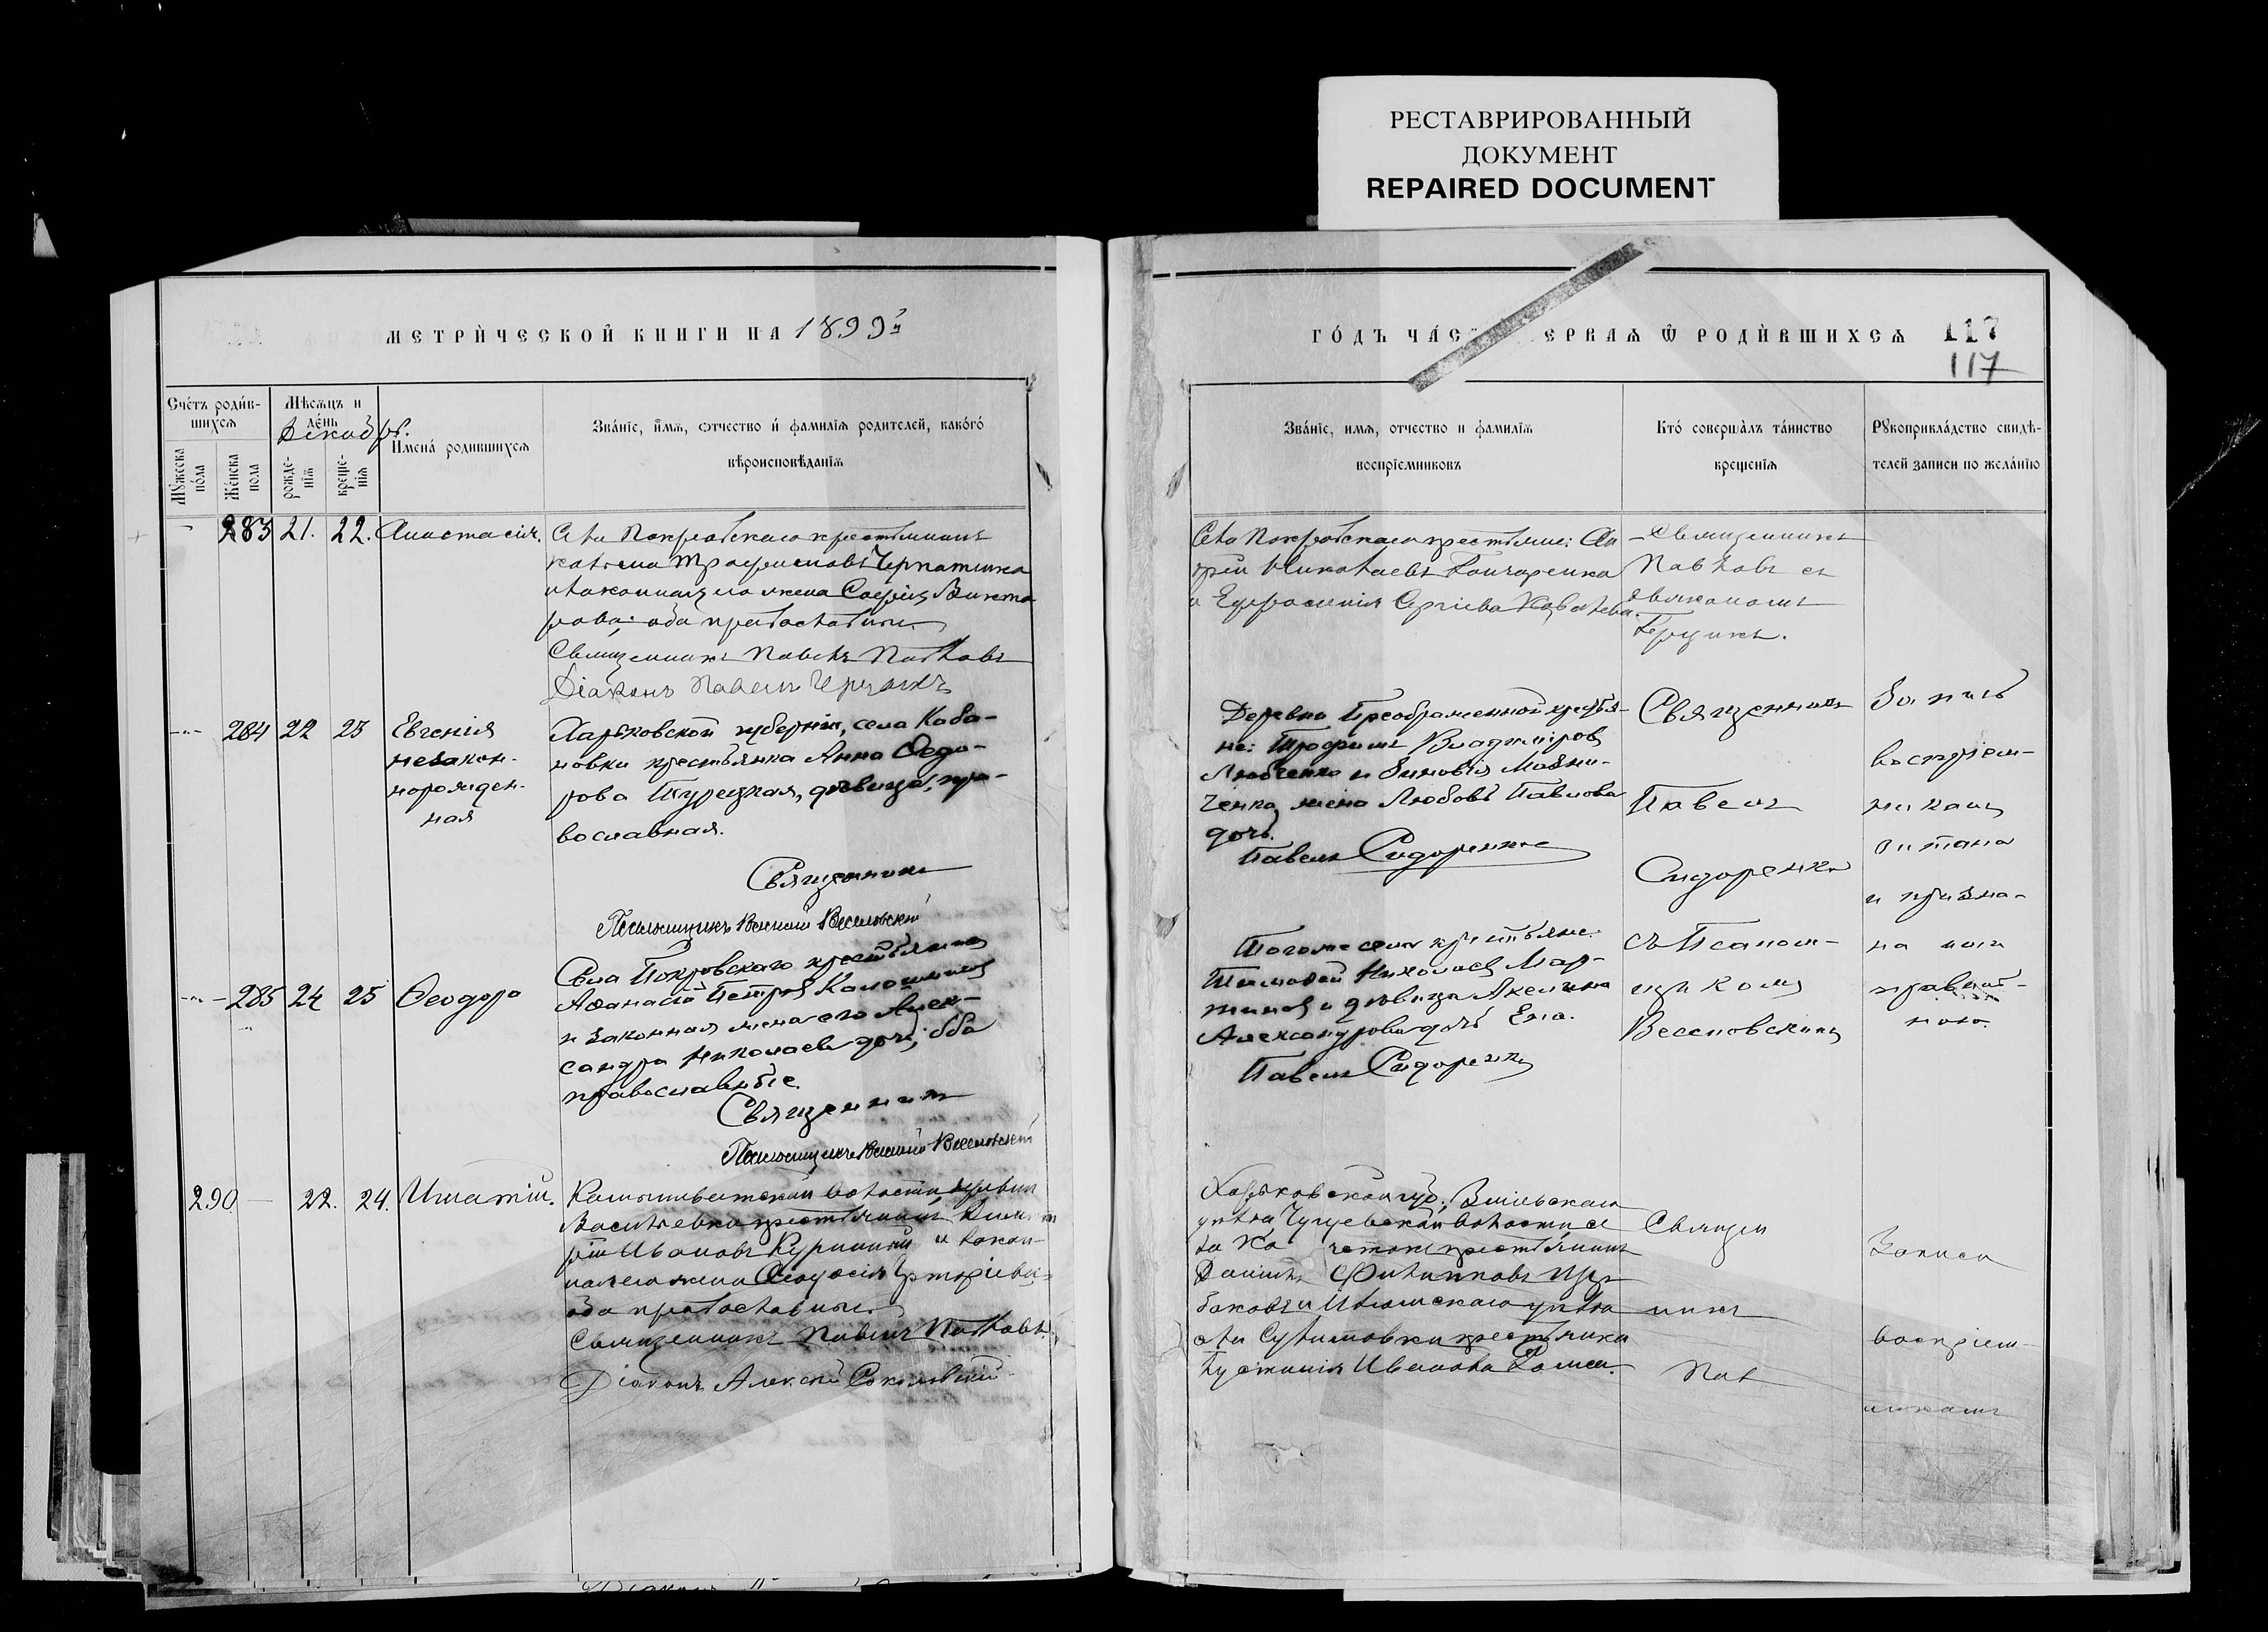 РЕСТАВРИРОВАННЫЙ
ДОКУМЕНТ
REPAIRED DOCUMENT
МЕТРИ́ЧЕСКОЙ КНИГИ НА 1899й
Сче́тъ роди́в-
шихсѧ
Мѣсѧцъ и
де́нь
Декабрь.
Мꙋ́жеска
по́ла
Же́нска
пола
рожде-
нїѧ
креще-
нїѧ
Имена́ родившихсѧ
Зва́нїе, и́мѧ, ѻтчество и́ фамилїѧ родителей, како́гѡ́
вѣроисповѣ́данїѧ
283 21. 22. Анастасія.
Села Покровскаго крестьянинъ
законная его жена Софія Викто
рова; оба православные.
Священникъ Павелъ
Діаконъ Павелъ
284 22 23 Евгенія
незакон-
норожден-
ная
Харьковской губерніи, села Каба-
новки крестьянка Анна Ѳедо-
рова Турецкая, дѣвица, пра-
вославная.
Священникъ
Псаломщикъ Василій Веселовскій
285 24 25 Ѳеодора
Села Покровскаго крестьянинъ
Аѳанасій Петровъ
и законная жена его Алек-
сандра Николаева дочь, оба
православные.
Священникъ
Псаломщикъ Василій Веселовскій
290. 22. 24. Игнатій.
волости деревни
Васильевки крестьянинъ Дими
трій Ивановъ и закон-
ная его жена Ѳеодосія Григоріева;
оба православные.
Священникъ Павелъ
Діаконъ Алексій Соколовскій
ГО́ДЪ ЧА́С ЕРВАѦ Ѽ РОДИ́ВШИХСѦ
117
117
Зва́нїе, имѧ, отчество и фамилїѧ
воспрїемниковъ
Кто́ соверша́лъ та́инство
крещенїѧ
Рꙋкоприкла́дство свидѣ́-
телей записи по жела́нїю
Села Покровскаго крестьяне: Ан
дрей Николаевъ Гончаренко
и Евфросинія Сергіева Ковалева.
Священникъ
съ
діакономъ
Деревни Преображенной крестья-
не: Трофимъ Владиміровъ
Любченко и Зиновія
ченка, жена Любовь Павлова
дочь.
Павелъ Сидоренко
Священникъ
Павелъ
Сидоренко
съ Псалом-
щикомъ
Веселовскимъ
Запись
воспріем-
никамъ
читана
и призна-
на ими
правиль-
ною.
Тогоже села крестьяне:
Тимоѳей Николаевъ Мар-
тиновъ и дѣвица Акелина
Александрова дочь
Павелъ Сидоренко
Харьковской губ. Зміевскаго
уѣзда Чугуевской волости се
ла Ко четокъ крестьянинъ
Даніилъ Филипповъ
и Изюмскаго уѣзда
села крестьянка
Іустинія Иванова
Священ
никъ
Пав
Записи
воспріем-
никамъ